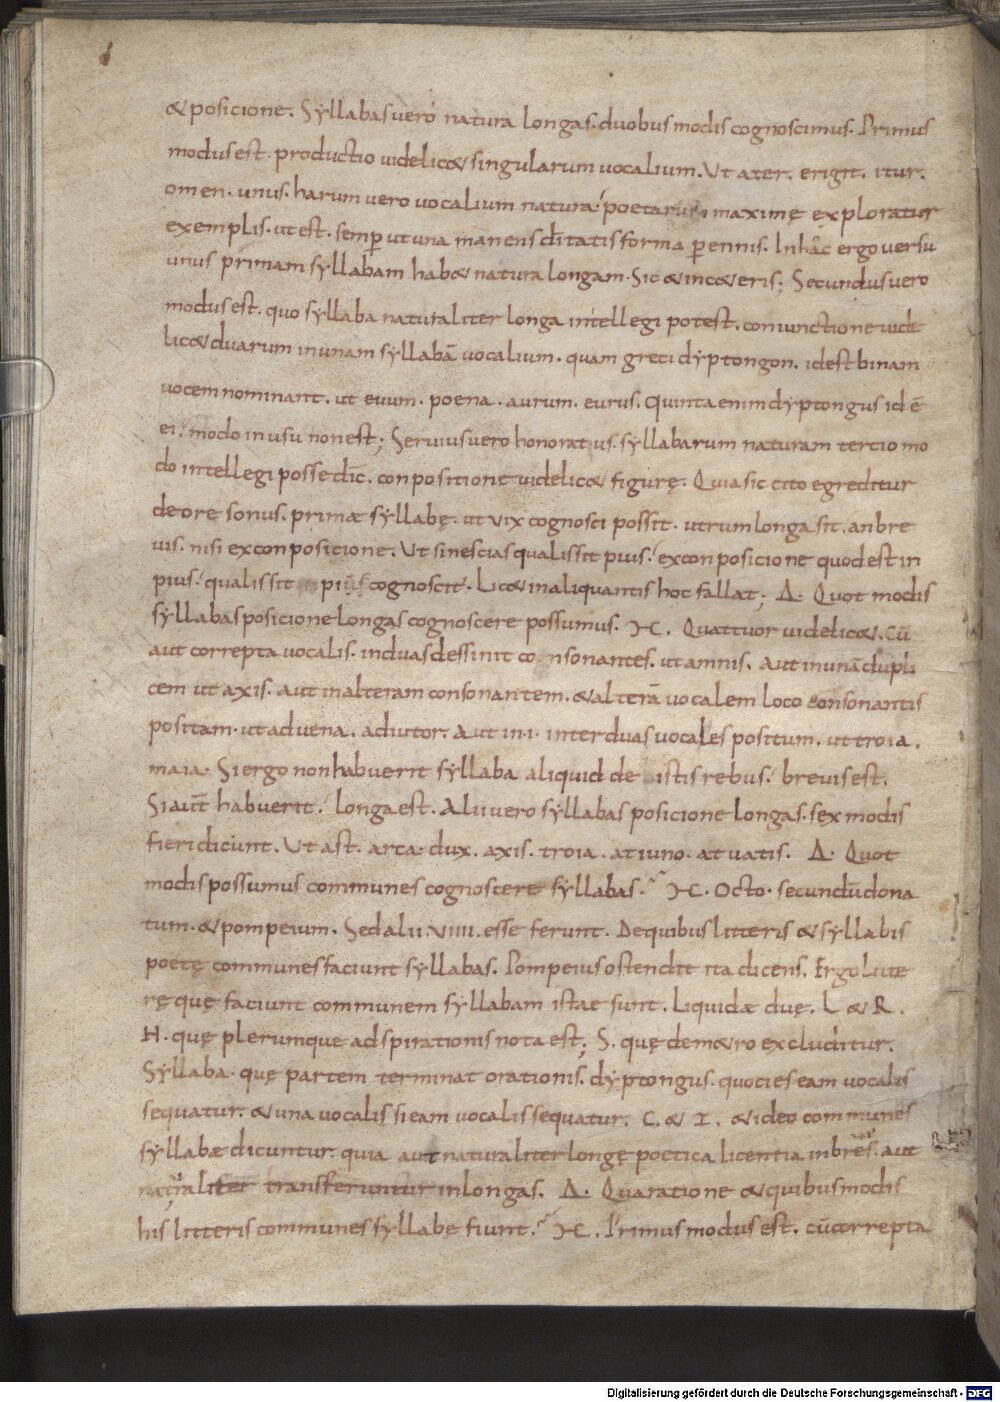 & posicione. Syllabas vero natura longas. duobus modis cognoscimus. Primus
modus est. productio videlic& singularum vocalium. Ut ater. erigit. itur.
omen. unus. harum vero vocalium natura poetarum maximę exploratur
exemplis. ut est. semp ut una manens dītatis forma pennis. In hac ergo versu
unus primam syllabam hab& natura longam. Sic & in c&eris; Secundus vero
modus est. quo syllaba naturaliter longa intellegi potest. coniunctione vide
lic& duarum in unam syllabā vocalium. quam greci dyptongon. id est binam
vocem nominant. ut euum. poena. aurum. eurus. Quinta enim dyptongus id ē
ei. modo in usu non est; Servius vero honoratus. syllabarum naturam tercio mo
do intellegi posse dic̄. conpositione videlic& figurę. Quia sic cito egreditur
de ore sonus. primæ syllabę. ut vix cognosci possit. utrum longa sit. an bre
vis. nisi ex conposicione. Ut si nescias qualis sit pius. ex conposicione quod est in
pius. qualis sit pius cognoscit. Lic& in aliquantis hoc fallat; Δ. Quot modis
syllabas posicione longas cognoscere possumus. M. Quattuor videlic&. Cū
aut correpta vocalis. in duas dessinit consonantes. ut amnis. Aut in unā dupli
cem ut axis. aut in alteram consonantem. & alterā vocalem loco consonantis
positam. ut advena. adiutor. Aut in .i. inter duas vocales positum. ut troia.
maia. Si ergo non habuerit syllaba aliquid de istis rebus. brevis est.
Si aut̄ habuerit. longa est. Alii vero syllabas posicione longas. sex modis
fieri dicunt. Ut ast. arca. dux. axis. troia. at iuno. at vatis. Δ. Quot
modis possumus communes cognoscere syllabas. M. Octo. secundū dona
tum. & pompeium. Sed alii VIIII. esse ferunt. De quibus litteris & syllabis
poetę communes faciunt syllabas. Pompeius ostendit ita dicens. Ergo litte
rę quę faciunt communem syllabam istae sunt. Liquidæ duę. L & R.
H. quę plerumque adspirationis nota est; S. quę de m&ro excluditur.
Syllaba. quę partem terminat orationis. dyptongus. quocies eam vocalis
sequatur. & una vocalis si eam vocalis sequatur. C. & I. & ideo communes
syllabæ dicuntur. quia aut naturaliter longę poetica licentia in breves. aut
naturaliter transferuntur in longas. Δ. Qua ratione & quibus modis
his litteris communes syllabę fiunt. M. Primus modus est. cū correpta
Digitalisierung gefördert durch die Deutsche Forschungsgemeinschaft - DFG